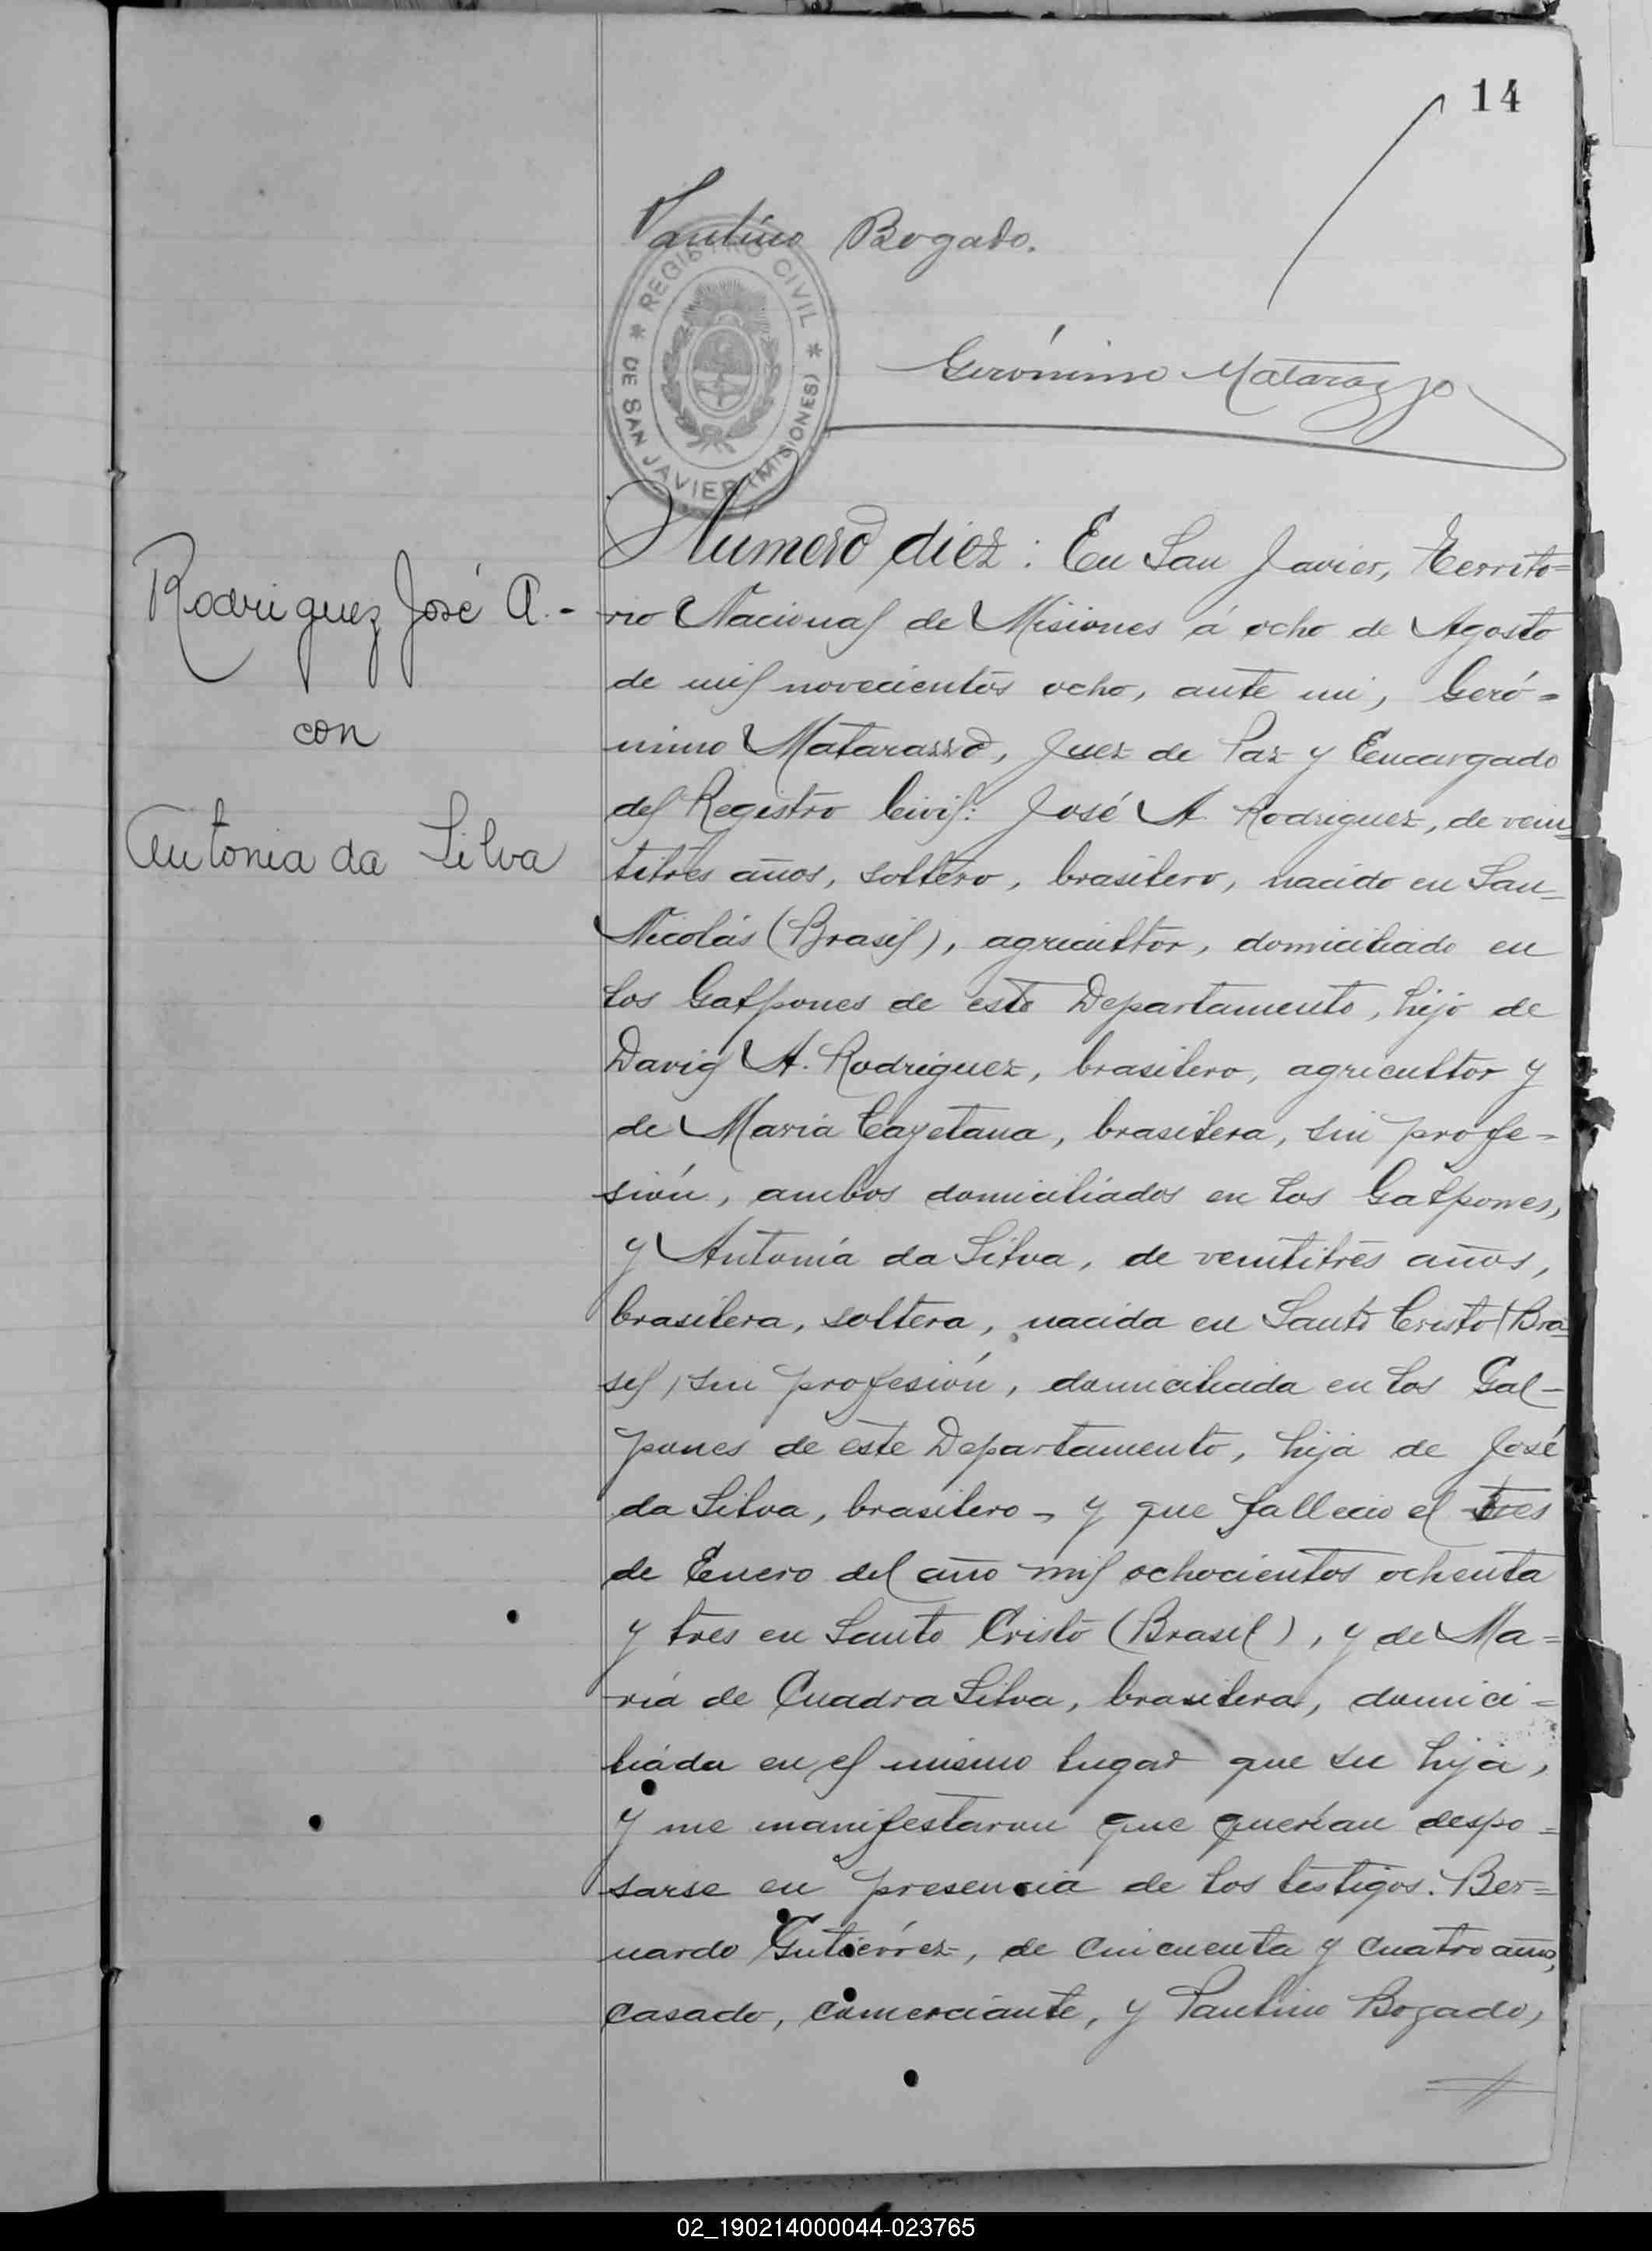 14
Pantlino Bogado.
REGISTRO CIVIL
DE SAN JAVIER (MISIONES)
Gerónimo Matarazzo
Rodriguez José A.-
con
Antonia da Silva
Número diez: En San Javier, Territo=
rio Nacional de Misiones á ocho de Agosto
de mil novecientos ocho, ante mi, Geró=
nimo Matarazzo, Juez de Paz y Encargado
del Registro Civil: José A. Rodriguez, de vein=
titres años, soltero, brasilero, nacido en San=
Nicolás (Brasil), agricultor, domiciliado en
los Galpones de este Departamento, hijo de
David A. Rodriguez, brasilero, agricultor y
de Maria Cayetana, brasilera, sin profe=
sión, ambos domiciliados en los Galpones,
y Antonia da Silva, de veintitres años,
brasilera, soltera, nacida en Santo Cristo (Bra=
sil, sin profesión, domiciliada en los Gal-
pones de este Departamento, hija de José
da Silva, brasilero, y que fallecio el tres
de Enero del año mil ochocientos ochenta
y tres en Santo Cristo (Brasil), y de Ma=
ria de Cuadra Silva, brasilera, domici=
liada en el mismo lugar que su hija,
y me manifestaron que querían despo=
sarse en presencia de los testigos: Ber=
nardo Gutiérrez, de cincuenta y cuatro años,
casado, comerciante, y Pantlino Bogado,
02_190214000044-023765